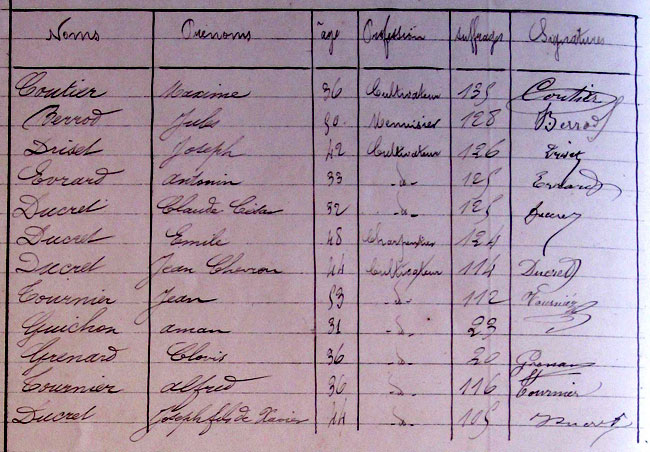 Noms Prenoms age Profession suffrages Signatures
Coutier Maxime 36 Cultivateur 135 Coutier
Berrod Jules 50 Menuisier 128 Berrod
Driset Joseph 42 Cultivateur 126 Driset
Evrard antonin 33 -d- 125 Evrard
Ducret Claude 32 -d- 125 Ducret
Ducret Emile 48 Charpentier 124
Ducret Jean Chevron 44 Cultivateur 114 Ducret
Tournier Jean 53 -d- 112 Tournier
Guichon aman 31 -d- 23
Grenard Clovis 36 -d- 20 Grenard
Tournier alfred 36 -d- 116 Tournier
Ducret Joseph fils de Xavier 44 -d- 105 Ducret